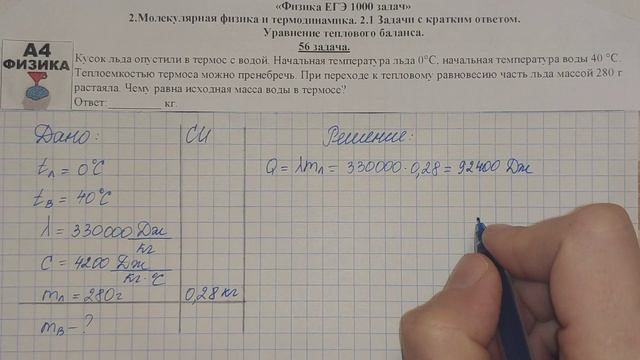 «Физика ЕГЭ 1000 задач»
2.Молекулярная физика и термодинамика. 2.1 Задачи с кратким ответом.
Уравнение теплового баланса.
56 задача.
А4
ФИЗИКА
Кусок льда опустили в термос с водой. Начальная температура льда 0°С, начальная температура воды 40 °С.
Теплоемкостью термоса можно пренебречь. При переходе к тепловому равновесию часть льда массой 280 г
растаяла. Чему равна исходная масса воды в термосе?
Ответ:__________ кг.
Дано: СИ Решение:
tл = 0°С Q = λmл = 330000·0,28 = 92400 Дж
tв = 40°С
λ = 330000 Дж/кг
С = 4200 Дж/кг·°С
mл = 280г 0,28 кг
mв - ?